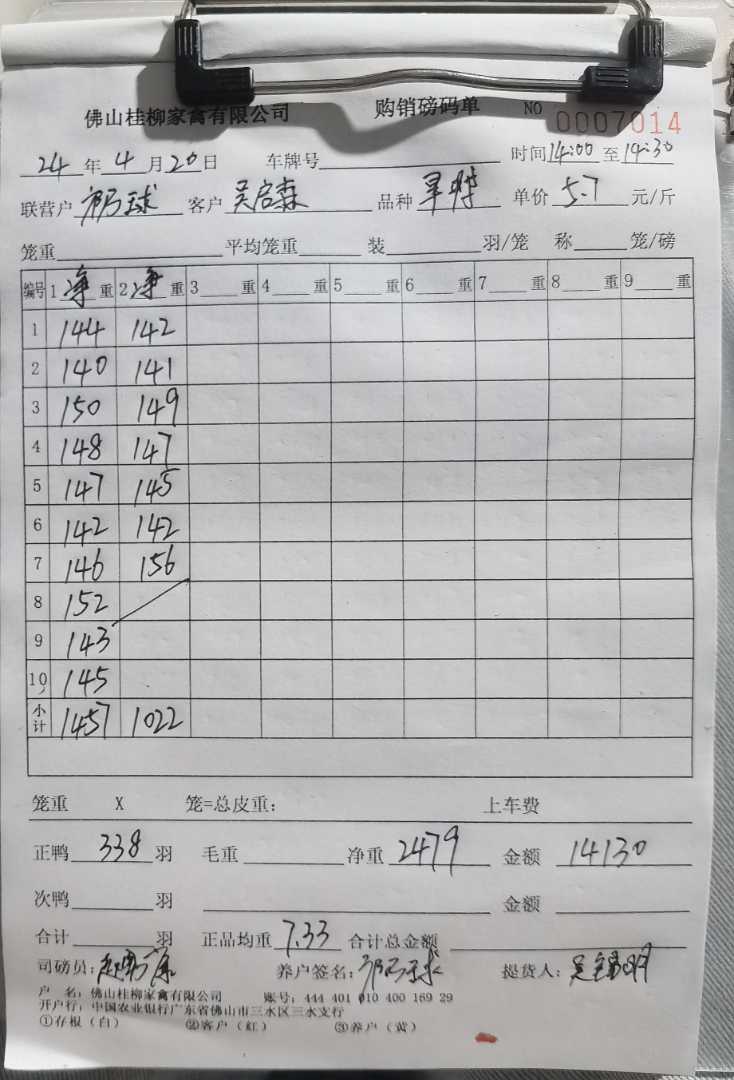 佛山桂柳家禽有限公司 购销磅码单 NO 0007014
24年4月20日 车牌号 时间14:00至14:30
联营户 球 客户 吴启森 品种 单价 5.7 元/斤
笼重 平均笼重 装 羽/笼 称 笼/磅
编号 1净重 2净重 3 重 4 重 5 重 6 重 7 重 8 重 9 重
1 144 142
2 140 141
3 150 149
4 148 147
5 147 145
6 142 142
7 146 156
8 152
9 143
10 145
小计 1457 1022
笼重 X 笼=总皮重: 上车费
正鸭 338 羽 毛重 净重 2479 金额 14130
次鸭 羽 金额
合计 羽 正品均重 7.33 合计总金额
司磅员: 养户签名: 球 提货人: 吴 明
户 名: 佛山桂柳家禽有限公司 账号: 444 401 010 400 169 29
开户行: 中国农业银行广东省佛山市三水区三水支行
①存根(白) ②客户(红) ③养户(黄)